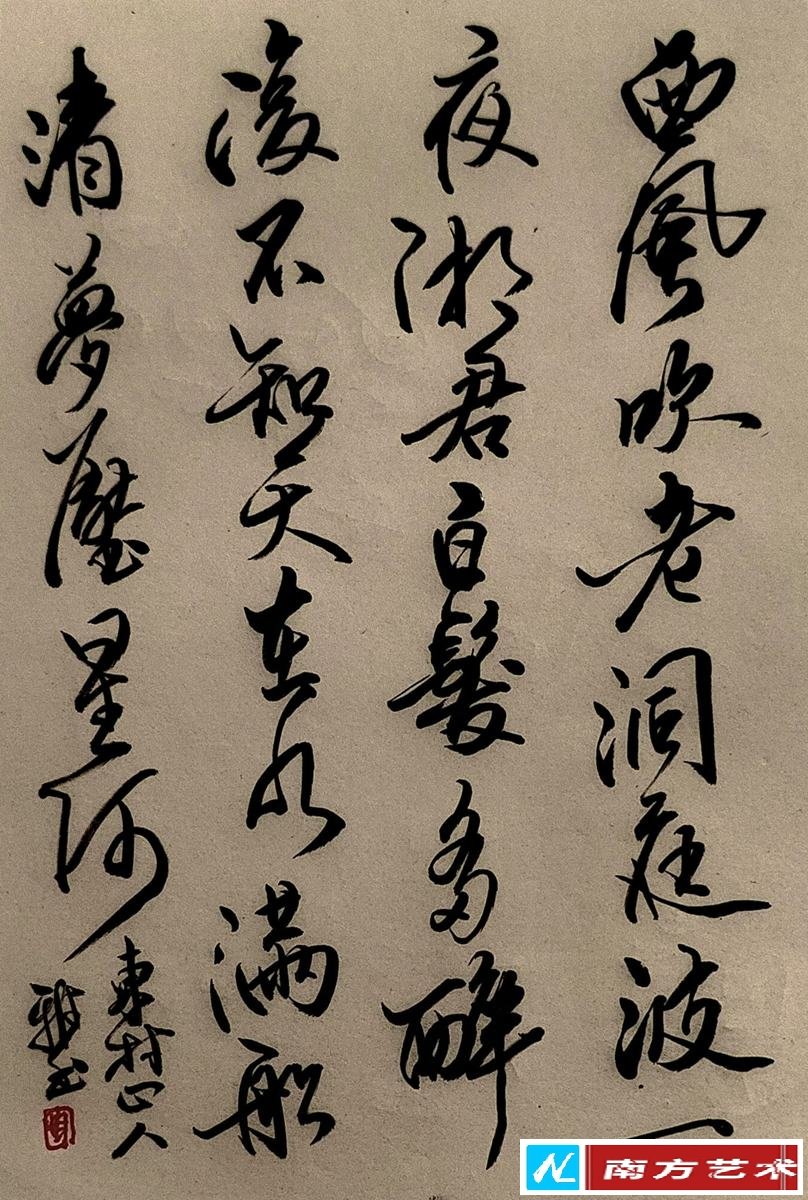 西風吹老洞庭波一
夜湘君白髮多醉
後不知天在水滿船
清夢壓星河
東村人
南方艺术